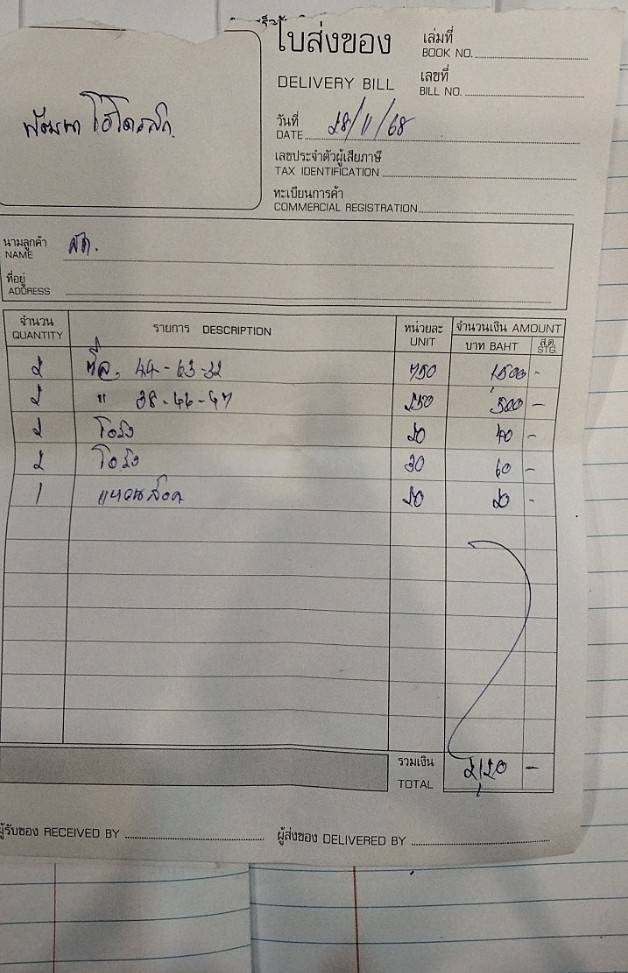 ใบส่งของ
DELIVERY BILL
เล่มที่
BOOK NO.
เลขที่
BILL NO.
พัฒนา ไฮโดรลิก
วันที่ 28/11/68
DATE
เลขประจำตัวผู้เสียภาษี
TAX IDENTIFICATION
ทะเบียนการค้า
COMMERCIAL REGISTRATION
นามลูกค้า
NAME
ที่อยู่
ADDRESS
จำนวน รายการ DESCRIPTION หน่วยละ จำนวนเงิน AMOUNT
QUANTITY UNIT บาท BAHT ส.ต. STG.
2 ซีล. 44-63-32 750 1,500 -
2 " 38-46-47 250 500 -
2 โอริง 20 40 -
2 โอริง 30 60 -
1 แหวนล็อค 20 20 -
รวมเงิน 2,120 -
TOTAL
ผู้รับของ RECEIVED BY ผู้ส่งของ DELIVERED BY